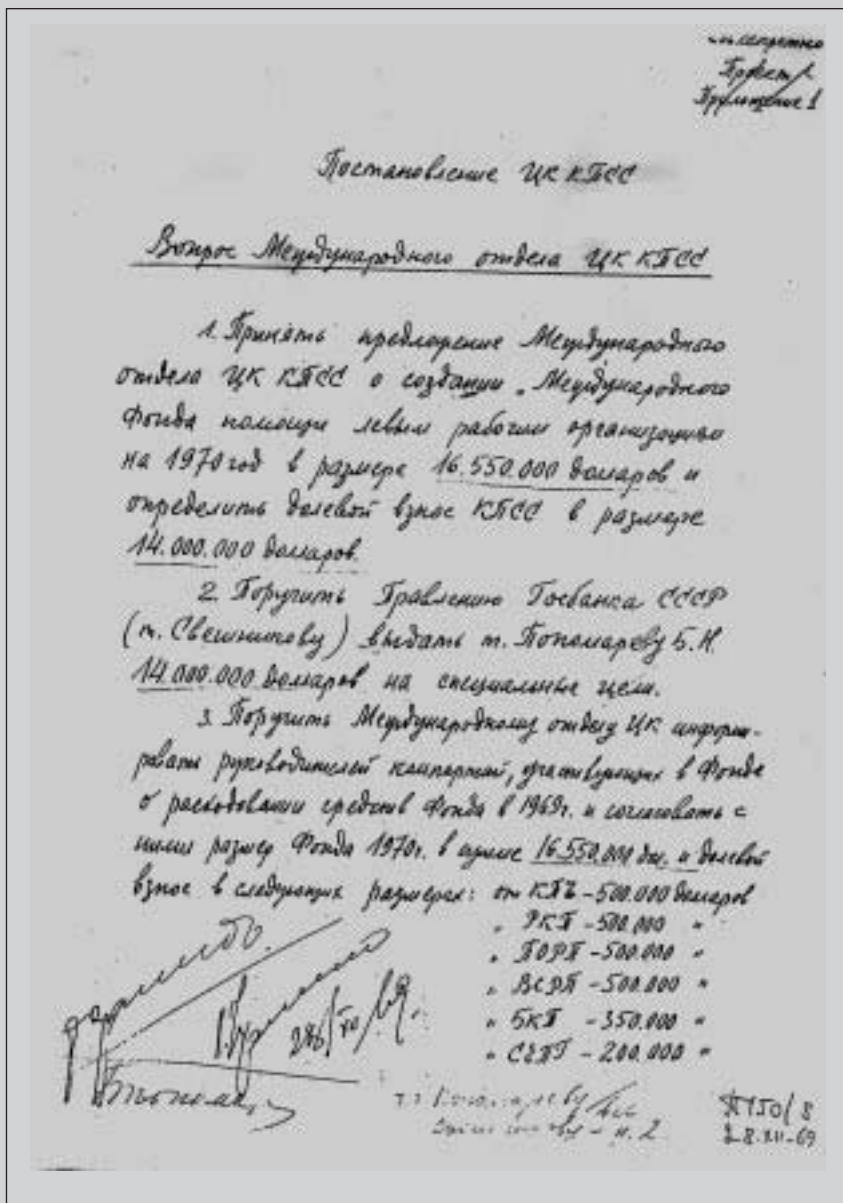 секретно
Проект
Приложение 1
Постановление ЦК КПСС
Вопрос Международного отдела ЦК КПСС
1. Принять предложение Международного
отдела ЦК КПСС о создании „Международного
Фонда помощи левым рабочим организациям
на 1970 год в размере 16.550.000 долларов и
определить долевой взнос КПСС в размере
14.000.000 долларов.
2. Поручить Правлению Госбанка СССР
(т. Свешникову) выдать т. Пономареву Б.Н.
14.000.000 долларов на специальные цели.
3. Поручить Международному отделу ЦК информи-
ровать руководителей компартий, участвующих в Фонде
о расходовании средств Фонда в 1969г. и согласовать с
ними размер Фонда 1970г. в сумме 16.550.000 дол. и долевой
взнос в следующих размерах: от КПЧ - 500.000 долларов
„ РКП - 500.000 "
„ ПОРП - 500.000 "
„ ВСРП - 500.000 "
„ БКП - 350.000 "
„ СЕПГ - 200.000 "
т.т. Пономареву
Свешникову - п. 2
П150/8
28.XII-69